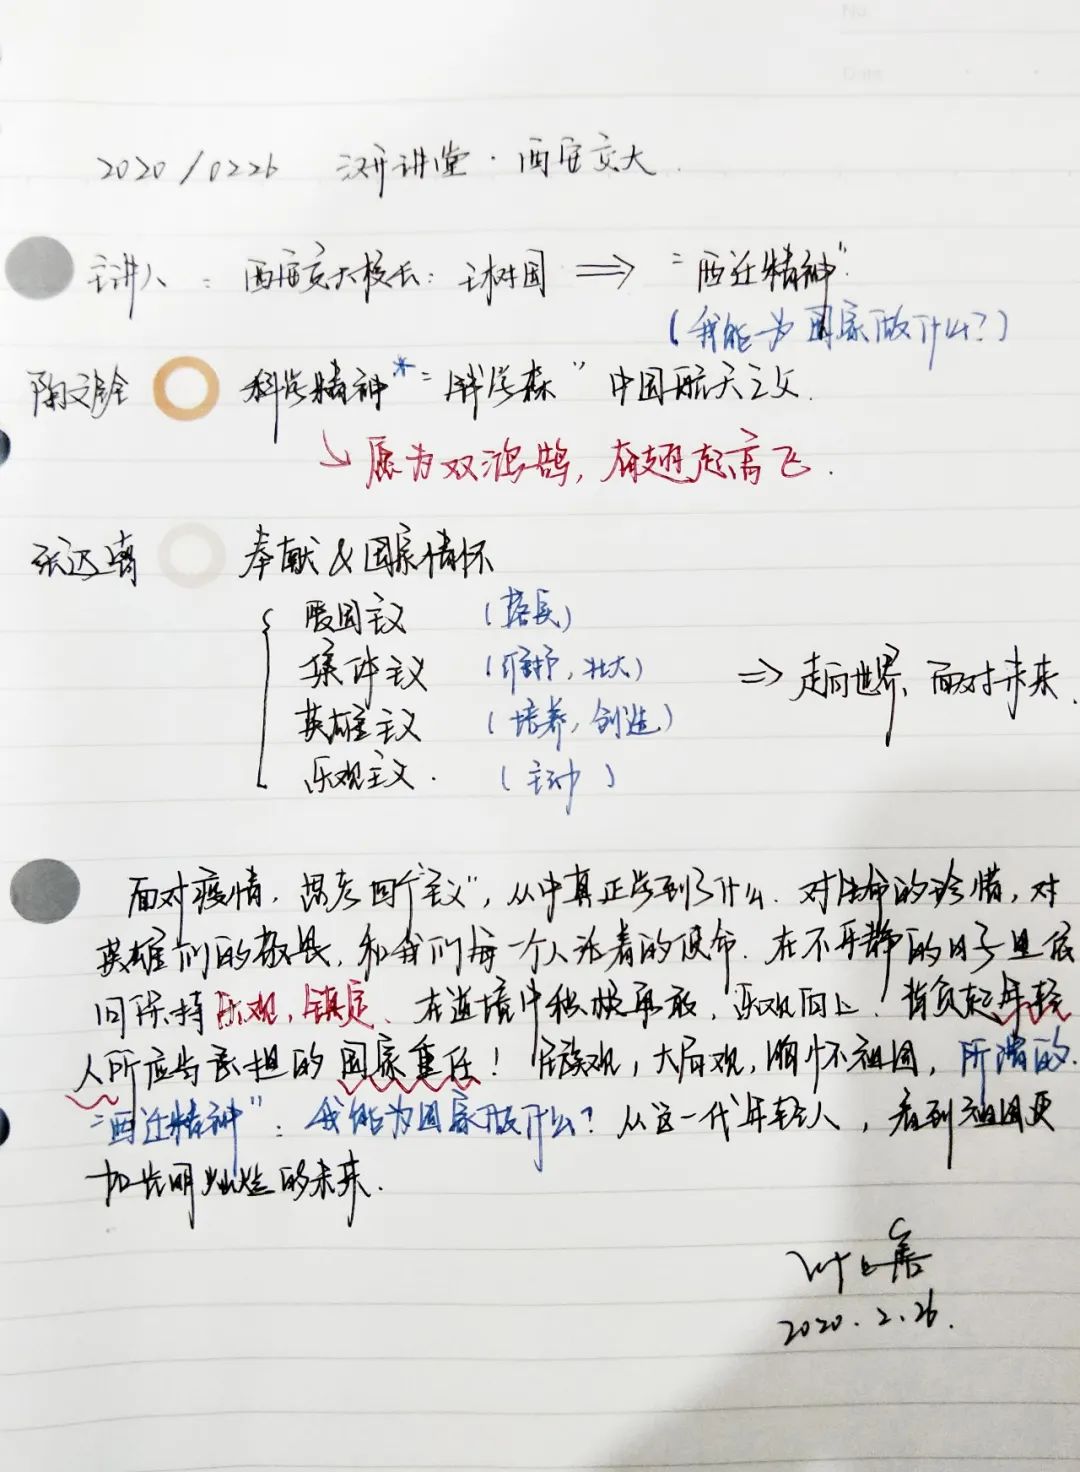 No.
Date
2020/0226 汉开讲堂·西安交大.
主讲人: 西安交大校长: 王树国 ⇒ "西迁精神".
(我能为国家做什么?)
陶文铨 科学精神* "钱学森" 中国航天之父.
↘ 愿为双鸿鹄, 奋翅起高飞.
张迈曾 奉献&国家情怀
爱国主义 (落实)
集体主义 (维护, 壮大)
英雄主义 (培养, 创造)
乐观主义. (主动)
⇒ 走向世界, 面对未来.
面对疫情, 思考四个"主义", 从中真正学到了什么. 对生命的珍惜, 对
英雄们的敬畏, 和我们每一个人活着的使命. 在不平静的日子里依
旧保持乐观, 镇定. 在逆境中积极勇敢, 乐观向上. 背负起年轻
人所应当承担的国家重任! 民族观, 大局观, 胸怀祖国, 所谓的
"西迁精神": 我能为国家做什么? 从这一代年轻人, 看到祖国更
加光明灿烂的未来.
2020.2.26.